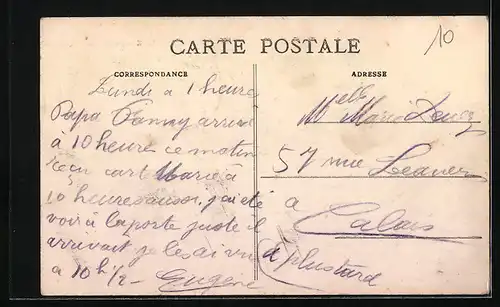 10
CARTE POSTALE
CORRESPONDANCE
ADRESSE
Lundi a 1 heure
Papa Fanny arrivé
à 10 heure ce matin
reçu cart Marie à
10 heure aussi, j'ai été
voir à la porte juste il
arrivait je les ai vu
a 10h 1/2 - Eugène
Melle Marie
57 rue
à
Calais
à plustard